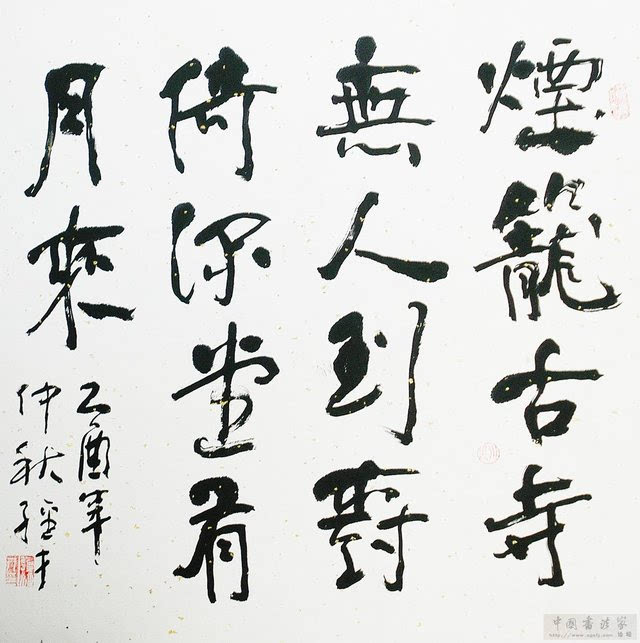 煙籠古寺
無人到樹
倚深堂有
月來
乙酉年
仲秋
中國書法家